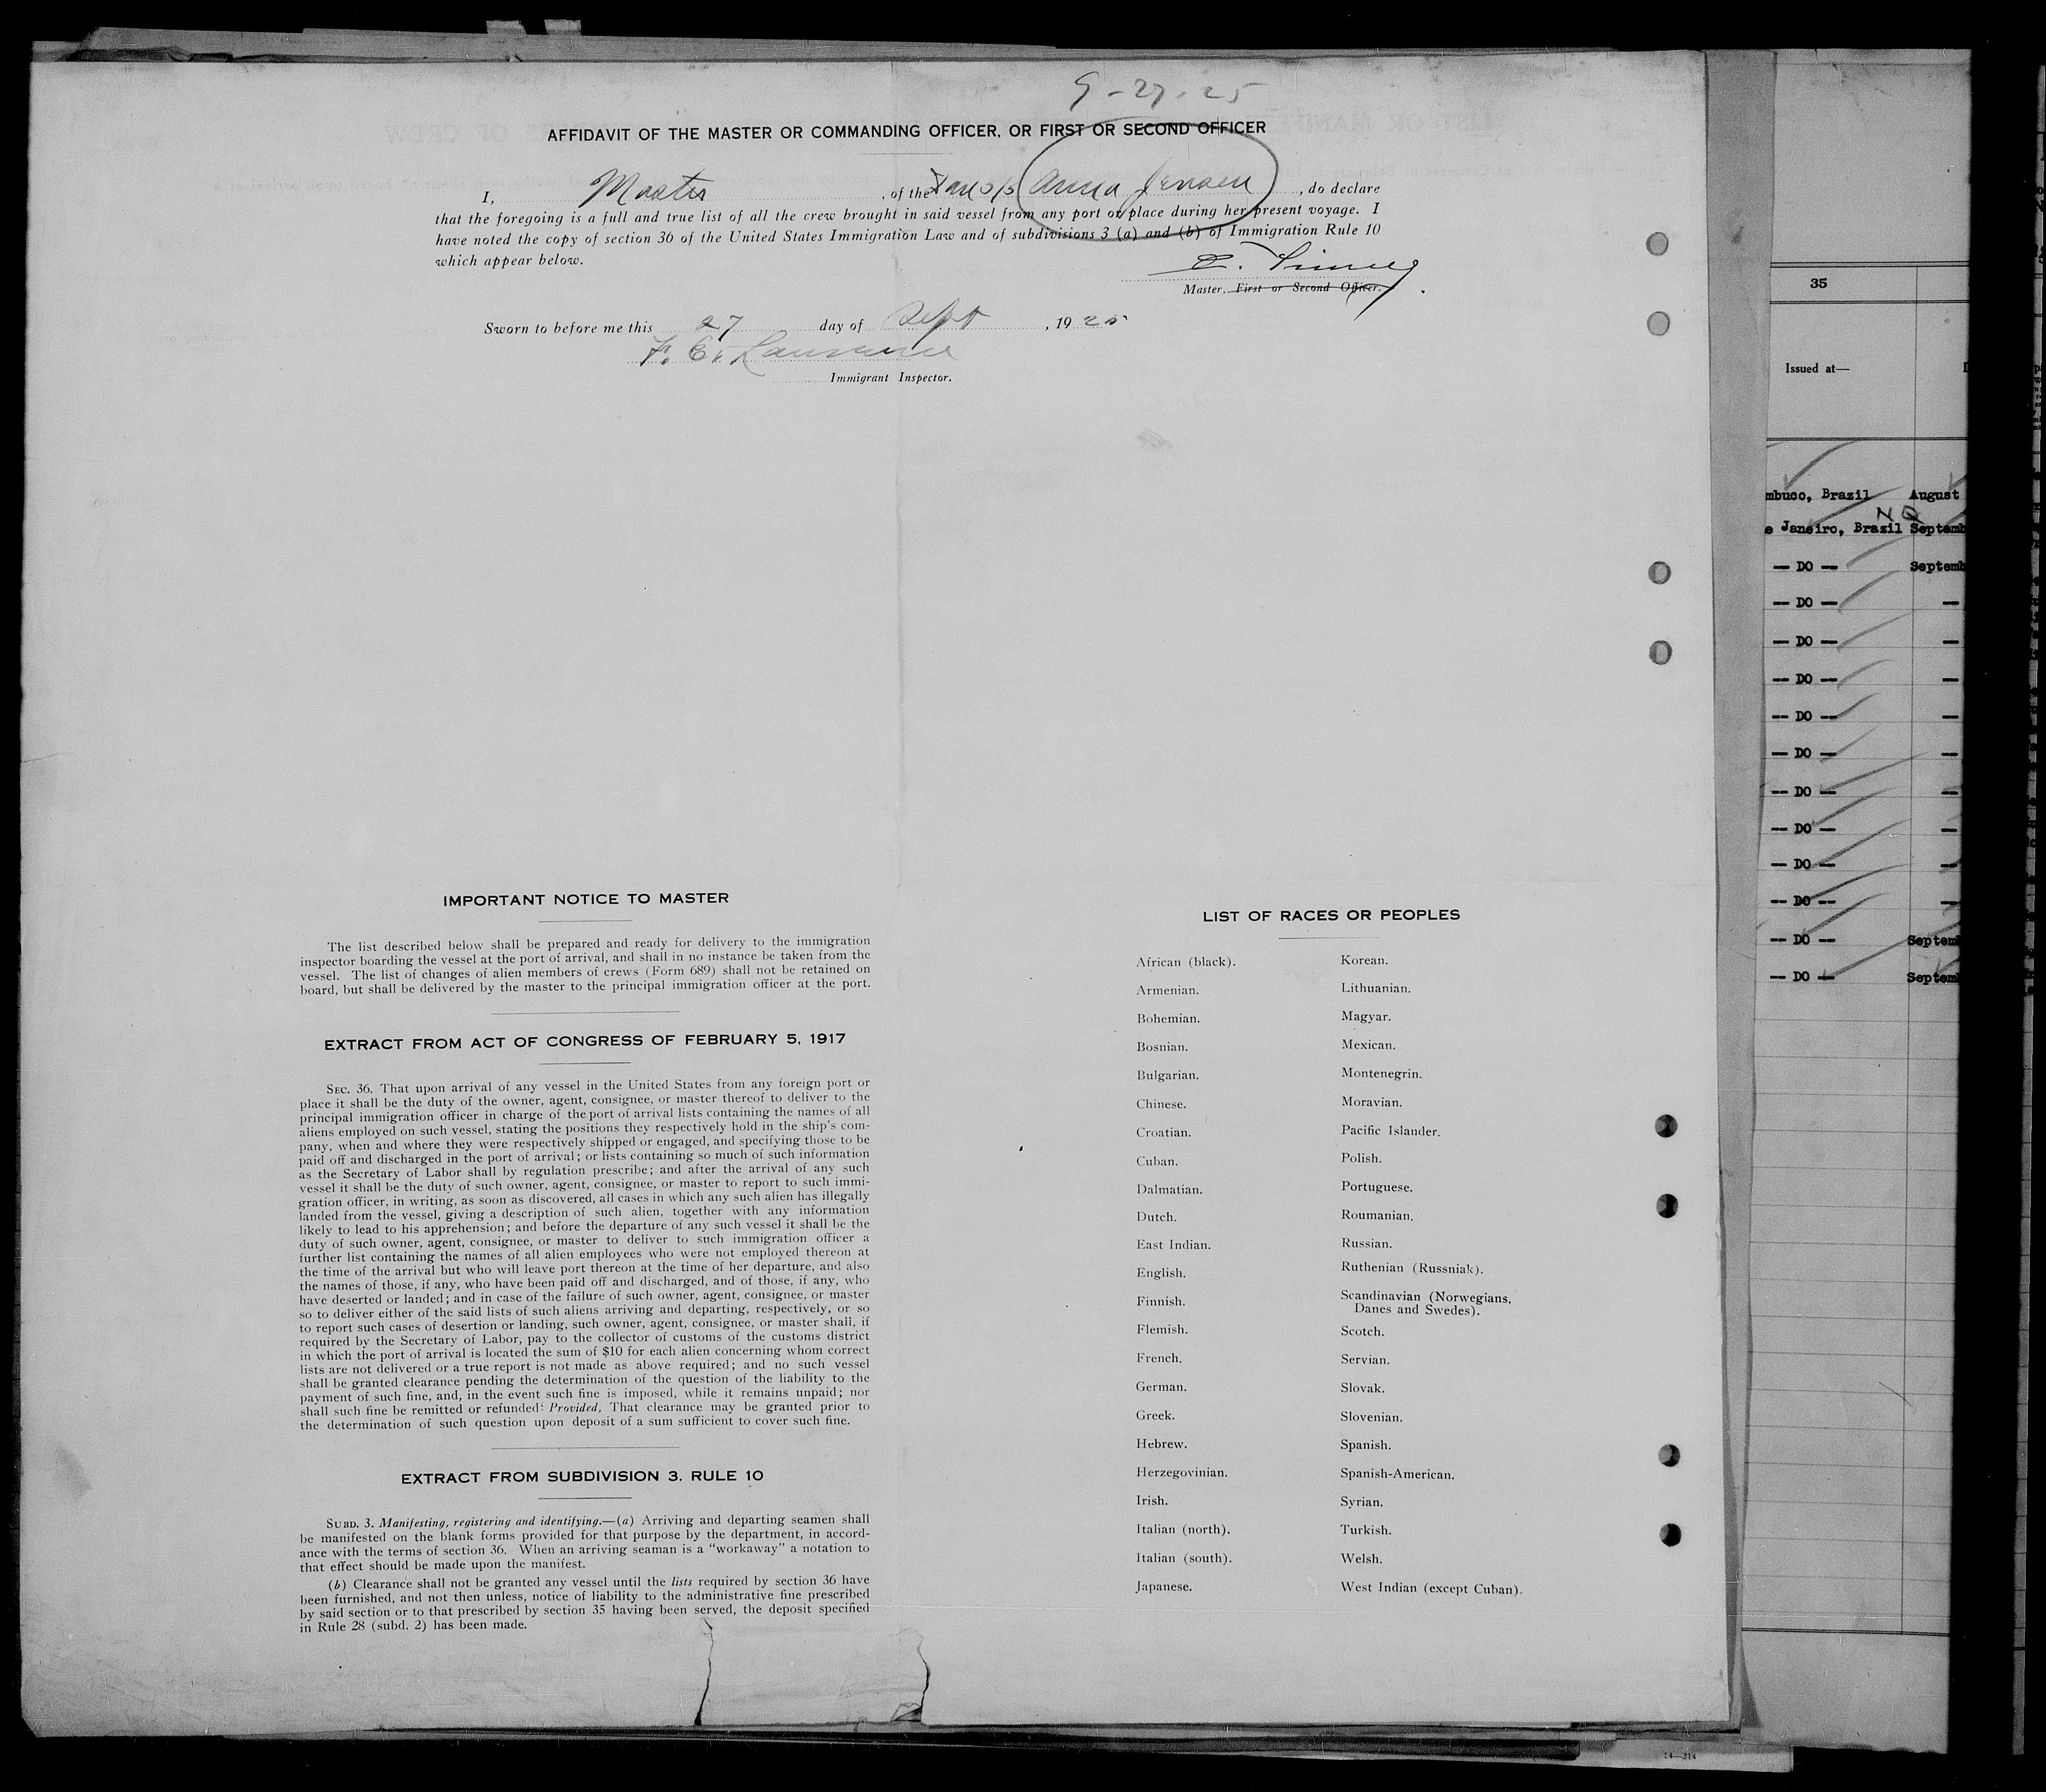 9-27-25
AFFIDAVIT OF THE MASTER OR COMMANDING OFFICER, OR FIRST OR SECOND OFFICER
I, Master, of the Dan S/S Anna Jensen, do declare
that the foregoing is a full and true list of all the crew brought in said vessel from any port or place during her present voyage. I
have noted the copy of section 36 of the United States Immigration Law and of subdivisions 3 (a) and (b) of Immigration Rule 10
which appear below.
Master, First or Second Officer.
Sworn to before me this 27 day of Sept, 1925
F. C.
Immigrant Inspector.
IMPORTANT NOTICE TO MASTER
The list described below shall be prepared and ready for delivery to the immigration
inspector boarding the vessel at the port of arrival, and shall in no instance be taken from the
vessel. The list of changes of alien members of crews (Form 689) shall not be retained on
board, but shall be delivered by the master to the principal immigration officer at the port.
EXTRACT FROM ACT OF CONGRESS OF FEBRUARY 5, 1917
SEC. 36. That upon arrival of any vessel in the United States from any foreign port or
place it shall be the duty of the owner, agent, consignee, or master thereof to deliver to the
principal immigration officer in charge of the port of arrival lists containing the names of all
aliens employed on such vessel, stating the positions they respectively hold in the ship's com-
pany, when and where they were respectively shipped or engaged, and specifying those to be
paid off and discharged in the port of arrival; or lists containing so much of such information
as the Secretary of Labor shall by regulation prescribe; and after the arrival of any such
vessel it shall be the duty of such owner, agent, consignee, or master to report to such immi-
gration officer, in writing, as soon as discovered, all cases in which any such alien has illegally
landed from the vessel, giving a description of such alien, together with any information
likely to lead to his apprehension; and before the departure of any such vessel it shall be the
duty of such owner, agent, consignee, or master to deliver to such immigration officer a
further list containing the names of all alien employees who were not employed thereon at
the time of the arrival but who will leave port thereon at the time of her departure, and also
the names of those, if any, who have been paid off and discharged, and of those, if any, who
have deserted or landed; and in case of the failure of such owner, agent, consignee, or master
so to deliver either of the said lists of such aliens arriving and departing, respectively, or so
to report such cases of desertion or landing, such owner, agent, consignee, or master shall, if
required by the Secretary of Labor, pay to the collector of customs of the customs district
in which the port of arrival is located the sum of $10 for each alien concerning whom correct
lists are not delivered or a true report is not made as above required; and no such vessel
shall be granted clearance pending the determination of the question of the liability to the
payment of such fine, and, in the event such fine is imposed, while it remains unpaid; nor
shall such fine be remitted or refunded: Provided, That clearance may be granted prior to
the determination of such question upon deposit of a sum sufficient to cover such fine.
EXTRACT FROM SUBDIVISION 3. RULE 10
SUBD. 3. Manifesting, registering and identifying.—(a) Arriving and departing seamen shall
be manifested on the blank forms provided for that purpose by the department, in accord-
ance with the terms of section 36. When an arriving seaman is a "workaway" a notation to
that effect should be made upon the manifest.
(b) Clearance shall not be granted any vessel until the lists required by section 36 have
been furnished, and not then unless, notice of liability to the administrative fine prescribed
by said section or to that prescribed by section 35 having been served, the deposit specified
in Rule 28 (subd. 2) has been made.
LIST OF RACES OR PEOPLES
African (black). Korean.
Armenian. Lithuanian.
Bohemian. Magyar.
Bosnian. Mexican.
Bulgarian. Montenegrin.
Chinese. Moravian.
Croatian. Pacific Islander.
Cuban. Polish.
Dalmatian. Portuguese.
Dutch. Roumanian.
East Indian. Russian.
English. Ruthenian (Russniak).
Finnish. Scandinavian (Norwegians,
Danes and Swedes).
Flemish. Scotch.
French. Servian.
German. Slovak.
Greek. Slovenian.
Hebrew. Spanish.
Herzegovinian. Spanish-American.
Irish. Syrian.
Italian (north). Turkish.
Italian (south). Welsh.
Japanese. West Indian (except Cuban).
35
Issued at—
mbuco, Brazil August
e Janeiro, Brazil Septemb
-- DO -- Septemb
-- DO -- --
-- DO -- --
-- DO -- --
-- DO -- --
-- DO -- --
-- DO -- --
-- DO -- --
-- DO -- --
-- DO -- --
-- DO -- Septem
-- DO -- Septem
14—214